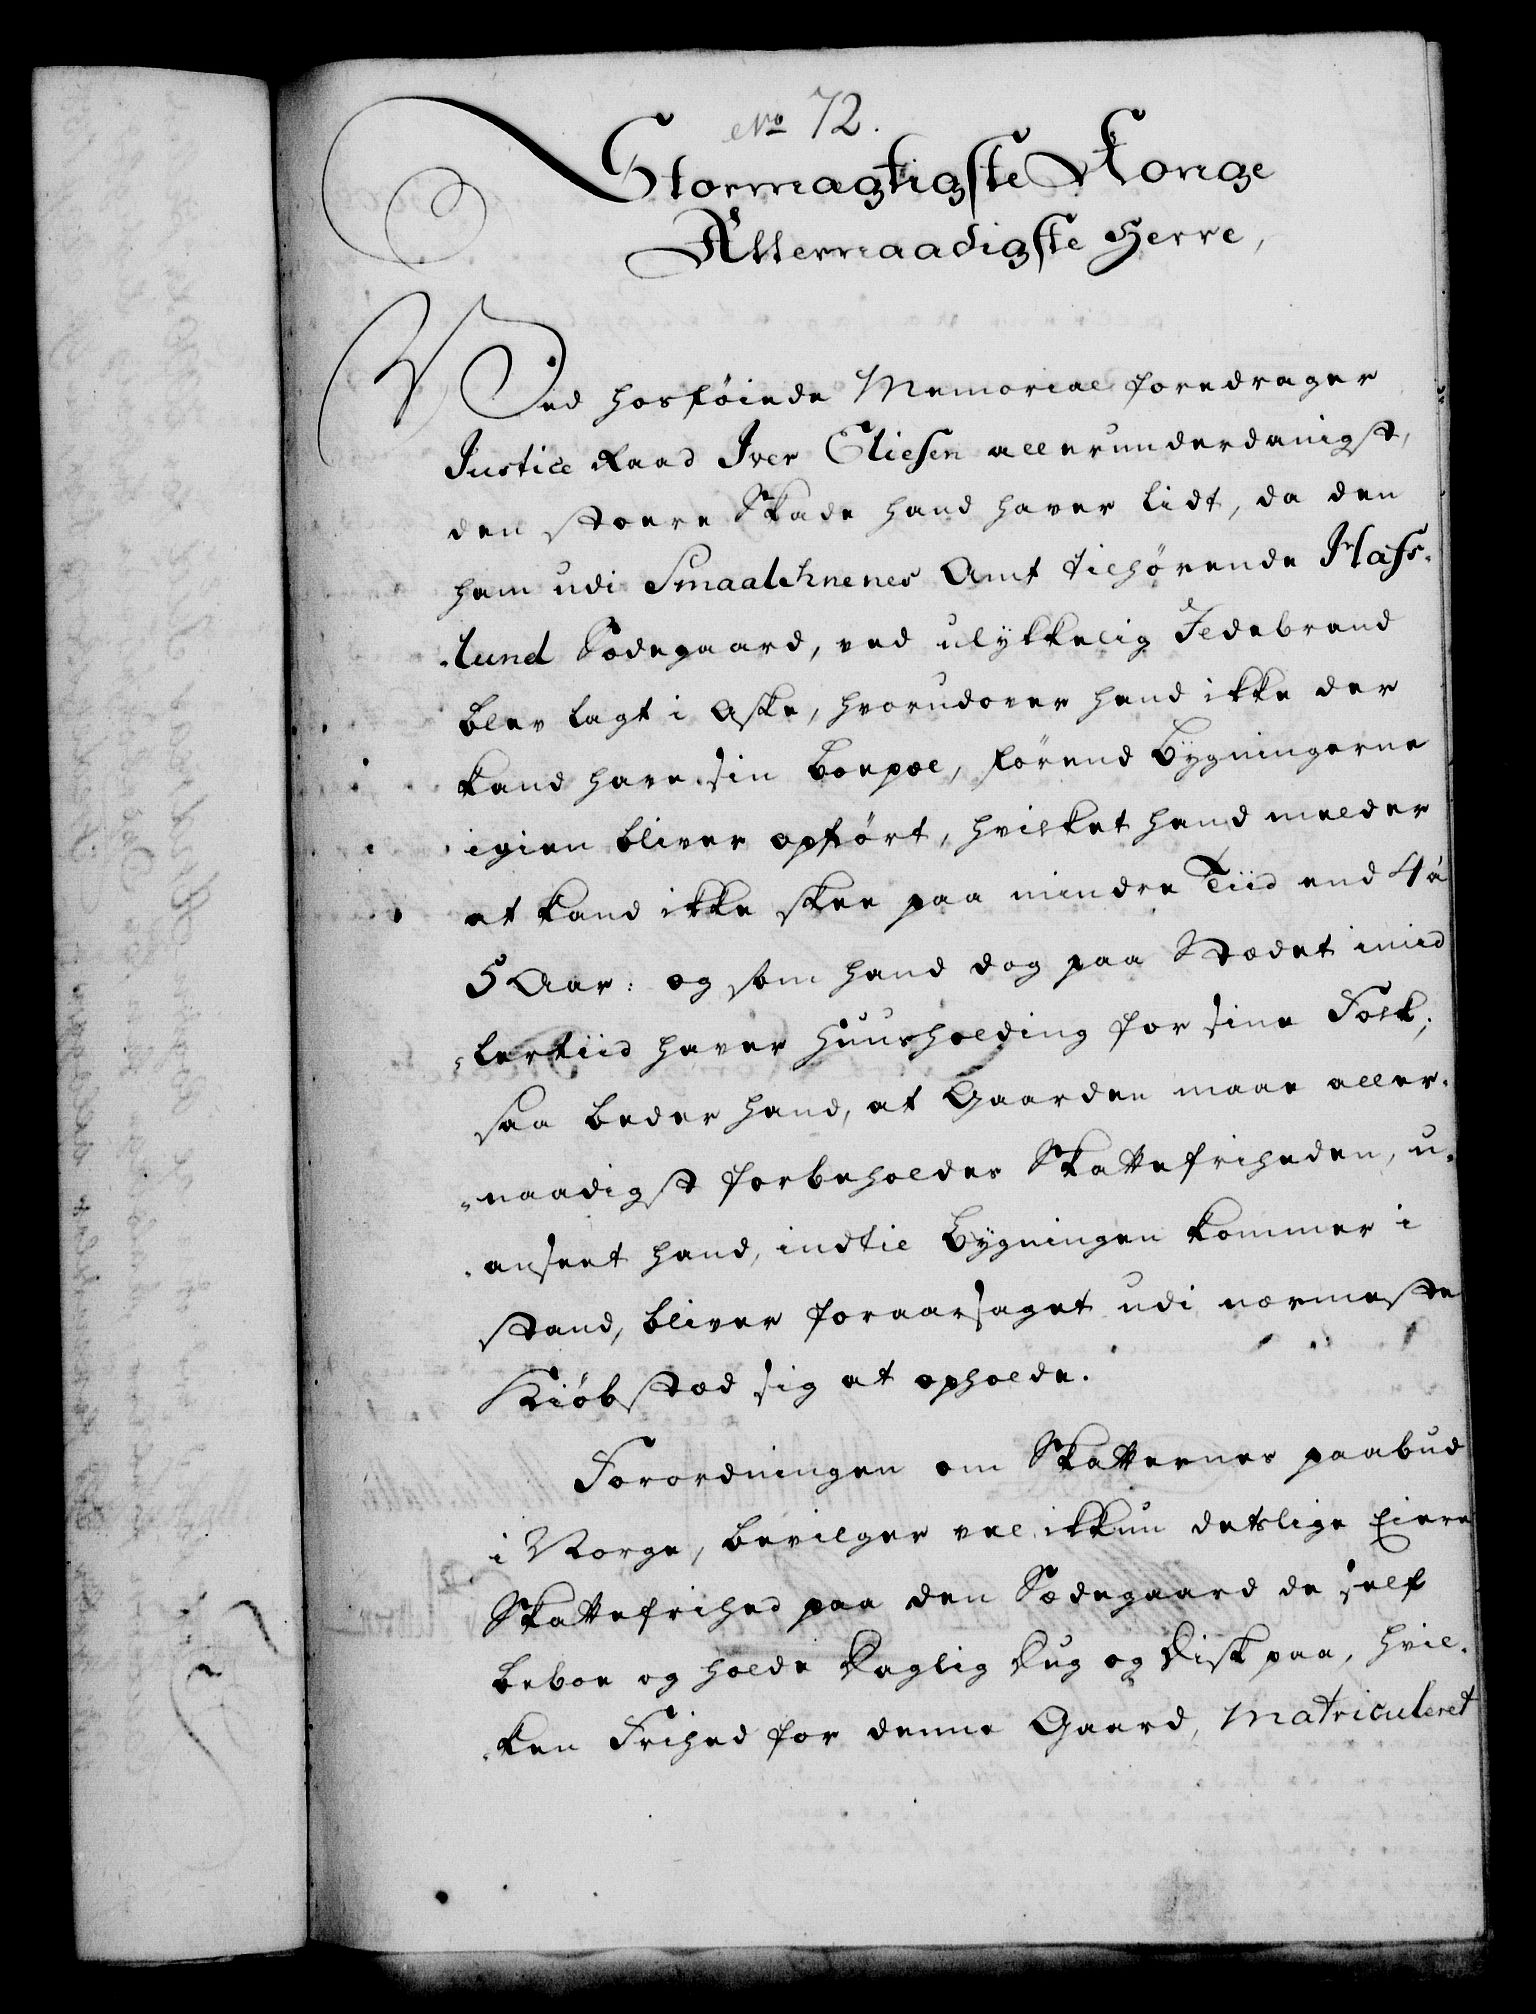 No 72.
Stormægtigste Konge
Allernaadigste Herre,
Ved hosføiede Memorial foredrager
Justice Raad Iver Eliesen allerunderdanigst,
den stoere Skade hand haver lidt, da den
ham udi Smaalehnenes Amt tilhørende Hafs-
-lund Sædegaard, ved ulykkelig Ildebrand
blev lagt i Aske, hvorudover hand ikke der
kand have sin boepæl, førend bygningerne
igien bliver opført, hvilket hand melder
at kand ikke skee paa mindre Tiid end 4 à
5 Aar: og som hand dog paa Stædet imid
-lertiid haver Huusholding for sine Folk;
saa beder hand, at Gaarden maae aller-
-naadigst forbeholdes Skattefriheden, u-
-anseet hand, indtil Bygningen kommer i
stand, bliver foraarsaget udi nærmeste
Kiøbstæd sig at opholde.
Forordningen om Skatternes paabud
i Norge, bevilger vel ikkun detslige Eiere
Skattefrihed paa den Sædegaard de self
beboe og holde daglig Dug og Disk paa, hvil-
-ken Frihed for denne Gaard, Matriculeret